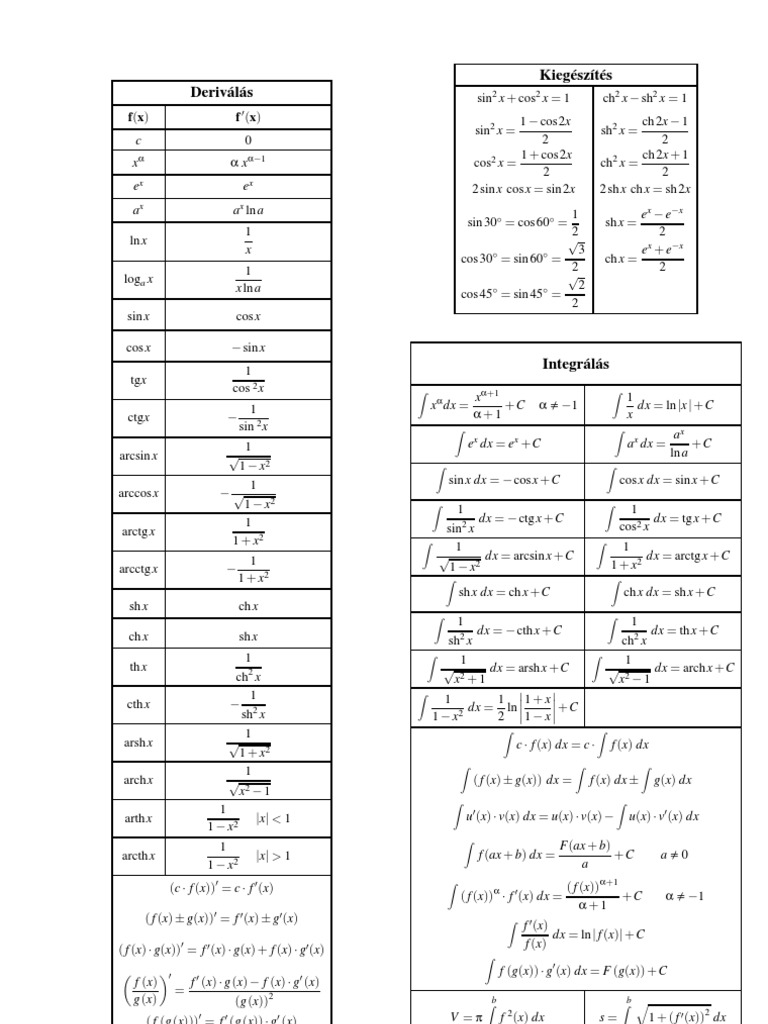 Deriválás
f(x) f′(x)
c 0
x^α α x^(α−1)
e^x e^x
a^x a^x ln a
ln x 1/x
log_a x 1/(x ln a)
sin x cos x
cos x − sin x
tg x 1/(cos ²x)
ctg x − 1/(sin ²x)
arcsin x 1/√(1 − x²)
arccos x − 1/√(1 − x²)
arctg x 1/(1 + x²)
arcctg x − 1/(1 + x²)
sh x ch x
ch x sh x
th x 1/(ch² x)
cth x − 1/(sh² x)
arsh x 1/√(1 + x²)
arch x 1/√(x² − 1)
arth x 1/(1 − x²) |x| < 1
arcth x 1/(1 − x²) |x| > 1
(c · f(x))′ = c · f′(x)
(f(x) ± g(x))′ = f′(x) ± g′(x)
(f(x) · g(x))′ = f′(x) · g(x) + f(x) · g′(x)
(f(x)/g(x))′ = (f′(x) · g(x) − f(x) · g′(x))/(g(x))²
(f(g(x)))′ = f′(g(x)) · g′(x)
Kiegészítés
sin² x + cos² x = 1 ch² x − sh² x = 1
sin² x = (1 − cos 2x)/2 sh² x = (ch 2x − 1)/2
cos² x = (1 + cos 2x)/2 ch² x = (ch 2x + 1)/2
2 sin x cos x = sin 2x 2 sh x ch x = sh 2x
sin 30° = cos 60° = 1/2 sh x = (e^x − e^(−x))/2
cos 30° = sin 60° = √3/2 ch x = (e^x + e^(−x))/2
cos 45° = sin 45° = √2/2
Integrálás
∫ x^α dx = x^(α+1)/(α + 1) + C α ≠ −1 ∫ 1/x dx = ln |x| + C
∫ e^x dx = e^x + C ∫ a^x dx = a^x/ln a + C
∫ sin x dx = − cos x + C ∫ cos x dx = sin x + C
∫ 1/(sin² x) dx = − ctg x + C ∫ 1/(cos² x) dx = tg x + C
∫ 1/√(1 − x²) dx = arcsin x + C ∫ 1/(1 + x²) dx = arctg x + C
∫ sh x dx = ch x + C ∫ ch x dx = sh x + C
∫ 1/(sh² x) dx = − cth x + C ∫ 1/(ch² x) dx = th x + C
∫ 1/√(x² + 1) dx = arsh x + C ∫ 1/√(x² − 1) dx = arch x + C
∫ 1/(1 − x²) dx = 1/2 ln |(1 + x)/(1 − x)| + C
∫ c · f(x) dx = c · ∫ f(x) dx
∫ (f(x) ± g(x)) dx = ∫ f(x) dx ± ∫ g(x) dx
∫ u′(x) · v(x) dx = u(x) · v(x) − ∫ u(x) · v′(x) dx
∫ f(ax + b) dx = F(ax + b)/a + C a ≠ 0
∫ (f(x))^α · f′(x) dx = (f(x))^(α+1)/(α + 1) + C α ≠ −1
∫ f′(x)/f(x) dx = ln |f(x)| + C
∫ f(g(x)) · g′(x) dx = F(g(x)) + C
V = π ∫^b f²(x) dx s = ∫^b √(1 + (f′(x))²) dx